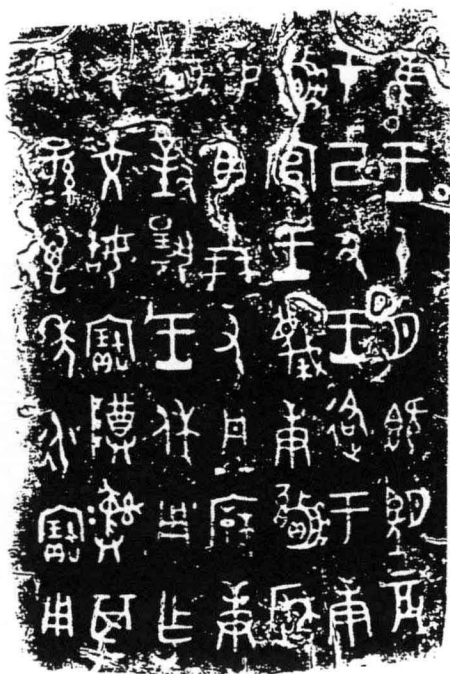 隹王十月既望辰
才己丑王各于庚
嬴宮王蔑庚嬴曆
易貝十朋又丹一㭒庚
嬴對揚王休用乍
氒文姑寶尊彝其
子子孫孫萬年永寶用